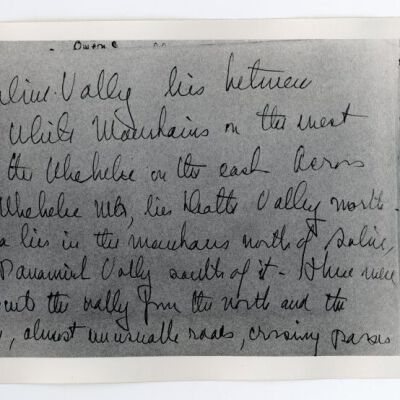 Valley lies between
White Mountains on the west
the Ubehebe on the east Across
Ubehebe Mts, lies Death Valley north
lies in the mountains north of Saline,
Panamint Valley south of it - three were
the valley from the north and the
almost unusuable roads, crossing passes